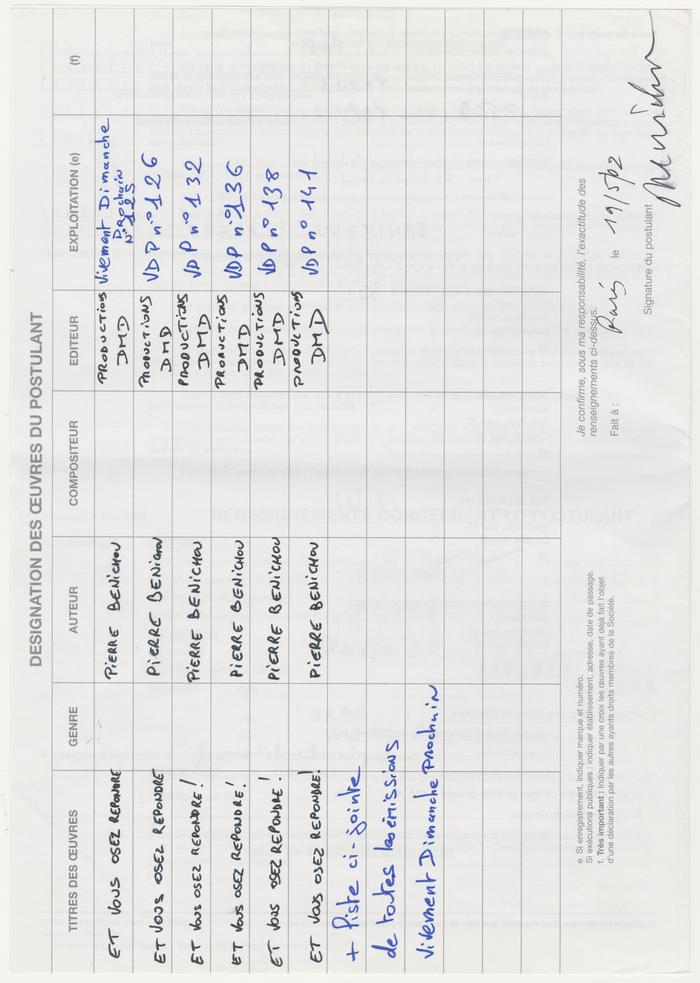 DESIGNATION DES ŒUVRES DU POSTULANT
TITRES DES ŒUVRES GENRE AUTEUR COMPOSITEUR EDITEUR EXPLOITATION (e) (f)
ET VOUS OSEZ REPONDRE PIERRE BENICHOU PRODUCTIONS DMD Vivement Dimanche Prochain N°125
ET VOUS OSEZ REPONDRE PIERRE BENICHOU PRODUCTIONS DMD VDP n°126
ET VOUS OSEZ REPONDRE! PIERRE BENICHOU PRODUCTIONS DMD VDP n°132
ET VOUS OSEZ REPONDRE! PIERRE BENICHOU PRODUCTIONS DMD VDP n°136
ET VOUS OSEZ REPONDRE! PIERRE BENICHOU PRODUCTIONS DMD VDP n°138
ET VOUS OSEZ REPONDRE! PIERRE BENICHOU PRODUCTIONS DMD VDP n°141
+ liste ci-jointe
de toutes les émissions
Vivement Dimanche Prochain
e. Si enregistrement, indiquer marque et numéro.
Si exécutions publiques : indiquer établissement, adresse, date de passage.
f. Très important : Indiquer par une croix les œuvres ayant déjà fait l'objet
d'une déclaration par les autres ayants droits membres de la Société.
Je confirme, sous ma responsabilité, l'exactitude des
renseignements ci-dessus.
Fait à : Paris le 19/5/02
Signature du postulant
RENSEIGNEMENTS CONCERNANT LE POSTULANT